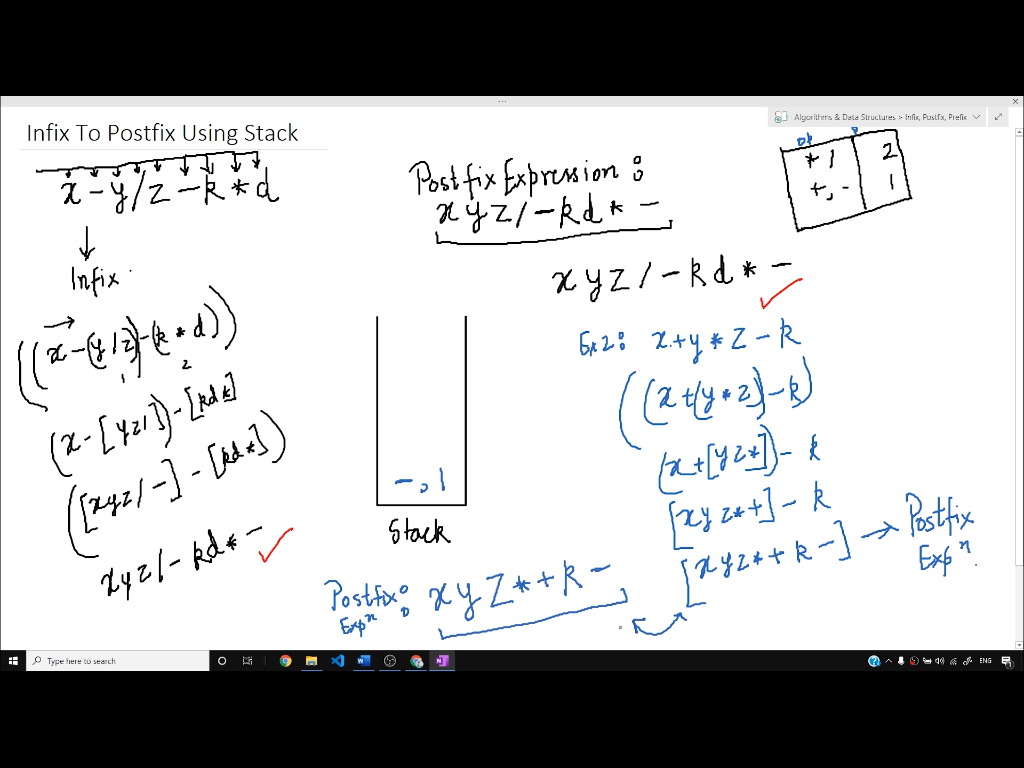 Algorithms & Data Structures > Infix, Postfix, Prefix
Infix To Postfix Using Stack
x - y / z - k * d
Infix
((x - (y / z)) - (k * d))
1 2
(x - [yz/]) - [kd*]
([xyz/-] - [kd*])
xyz/-kd*-
Postfix Expression :
xyz/-kd*-
xyz/-kd*-
op P
* / 2
+, - 1
-, 1
Stack
Postfix Expn : xyz*+k-
Ex2: x+y*z-k
((x+(y*z))-k)
(x+[yz*])-k
[xyz*+]-k
[xyz*+k-] → Postfix Expn.
Type here to search
ENG